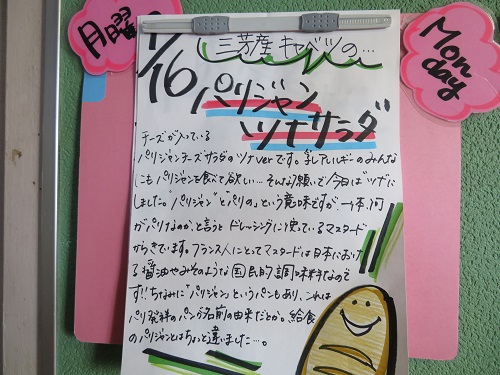 月曜日
Monday
1/16
三芳産キャベツの…
パリジャン
ツナサラダ
チーズが入っている
パリジャンチーズサラダのツナverです。乳アレルギーのみんな
にもパリジャンを食べて欲しい…そんな願いで今日は"ツナ"に
しました。"パリジャン"と"パリの"という意味ですが、一体、何
がパリなのか、と言うとドレッシングに使っているマスタード
からきています。フランス人にとってマスタードは日本におけ
る醤油やみそのような国民的調味料なので
す!!ちなみに"パリジャン"というパンもあり、これは
パリ発祥のパンが名前の由来だとか。給食
のパリジャンとはちょっと違いました…。